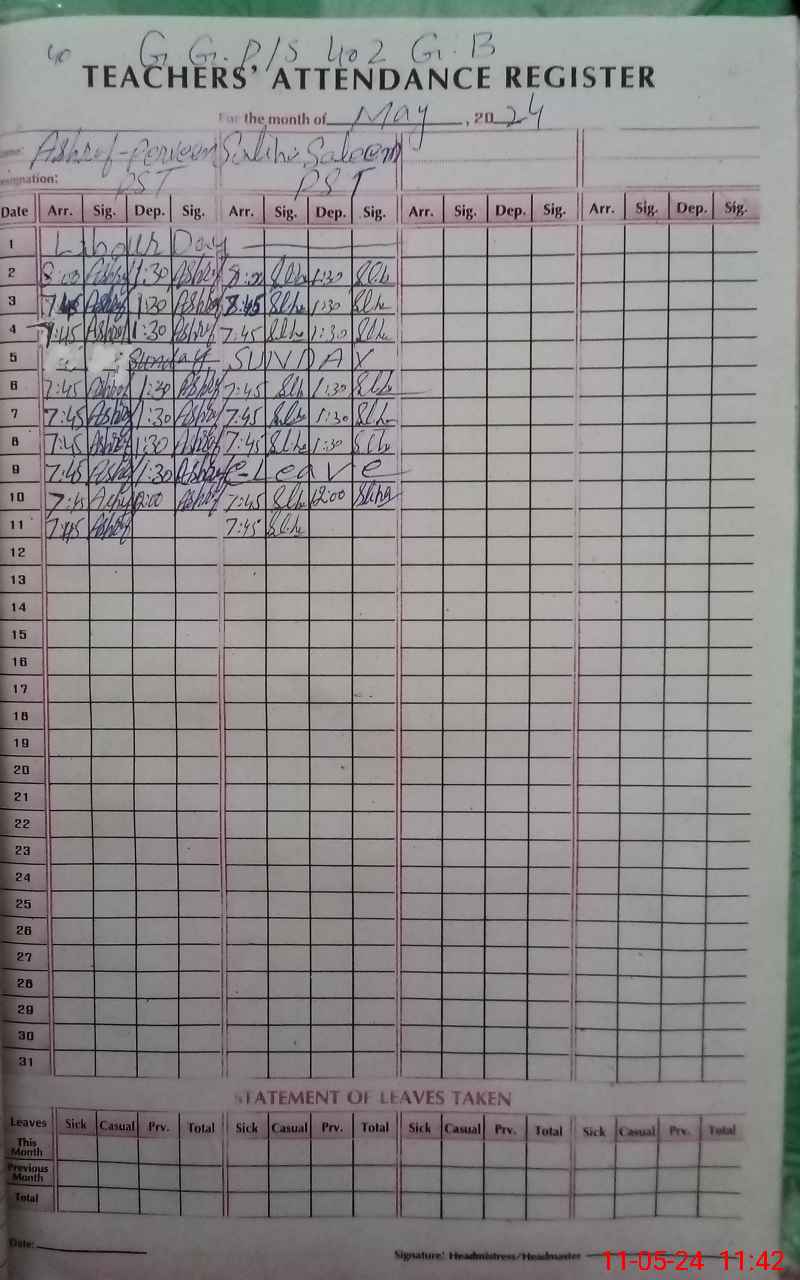 40 G. G. P/S 402 G. B
TEACHERS' ATTENDANCE REGISTER
For the month of May, 2024
Name: Ashraf-Perveen Saliha Saleem
Designation: PST PST
Date Arr. Sig. Dep. Sig. Arr. Sig. Dep. Sig. Arr. Sig. Dep. Sig. Arr. Sig. Dep. Sig.
1 Labour Day
2 8:00 Ashraf 1:30 Ashraf 8:00 Slha 1:30 Slha
3 7:45 Ashraf 1:30 Ashraf 8:45 Slha 1:30 Slha
4 7:45 Ashraf 1:30 Ashraf 7:45 Slha 1:30 Slha
5 Sunday SUNDAY
6 7:45 Ashraf 1:30 Ashraf 7:45 Slha 1:30 Slha
7 7:45 Ashraf 1:30 Ashraf 7:45 Slha 1:30 Slha
8 7:45 Ashraf 1:30 Ashraf 7:45 Slha 1:30 Slha
9 7:45 Ashraf 1:30 Ashraf C-Leave
10 7:45 Ashraf 12:00 Ashraf 7:45 Slha 12:00 Slha
11 7:45 Ashraf 7:45 Slha
12
13
14
15
16
17
18
19
20
21
22
23
24
25
26
27
28
29
30
31
STATEMENT OF LEAVES TAKEN
Leaves Sick Casual Prv. Total Sick Casual Prv. Total Sick Casual Prv. Total Sick Casual Prv. Total
This Month
Previous Month
Total
Date:
Signature: Headmistress/Headmaster
11-05-24 11:42